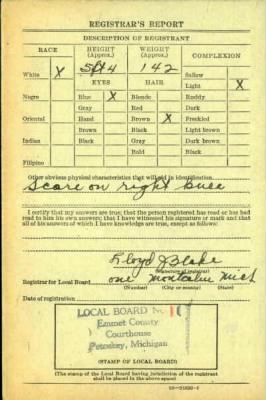 REGISTRAR'S REPORT
DESCRIPTION OF REGISTRANT
RACE HEIGHT (Approx.) WEIGHT (Approx.) COMPLEXION
5ft 4 142
White X Sallow
EYES HAIR Light X
Negro Blue X Blonde Ruddy
Gray Red Dark
Oriental Hazel Brown X Freckled
Brown Black Light brown
Indian Black Gray Dark brown
Bald Black
Filipino
Other obvious physical characteristics that will aid in identification
Scare on right knee
I certify that my answers are true; that the person registered has read or has had
read to him his own answers; that I have witnessed his signature or mark and that
all of his answers of which I have knowledge are true, except as follows:
Floyd J Blake
(Signature of registrar)
Registrar for Local Board one Montcalm Mich
(Number) (City or county) (State)
Date of registration
LOCAL BOARD No. 1
Emmet County
Courthouse
Petoskey, Michigan
(STAMP OF LOCAL BOARD)
(The stamp of the Local Board having jurisdiction of the registrant
shall be placed in the above space.)